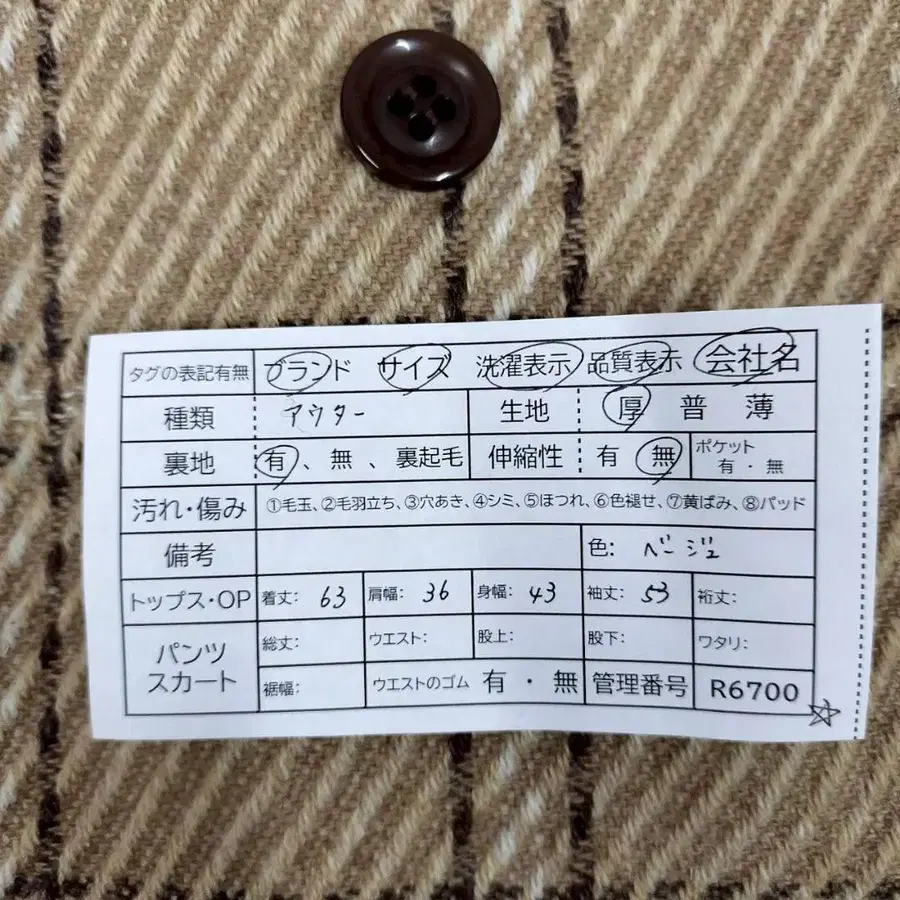 タグの表記有無 ブランド サイズ 洗濯表示 品質表示 会社名
種類 アウター 生地 厚 普 薄
裏地 有、無、裏起毛 伸縮性 有 無 ポケット 有・無
汚れ・傷み ①毛玉、②毛羽立ち、③穴あき、④シミ、⑤ほつれ、⑥色褪せ、⑦黄ばみ、⑧パッド
備考 色: ベージュ
トップス・OP 着丈: 63 肩幅: 36 身幅: 43 袖丈: 53 裄丈:
パンツ スカート 総丈: ウエスト: 股上: 股下: ワタリ:
裾幅: ウエストのゴム 有・無 管理番号 R6700